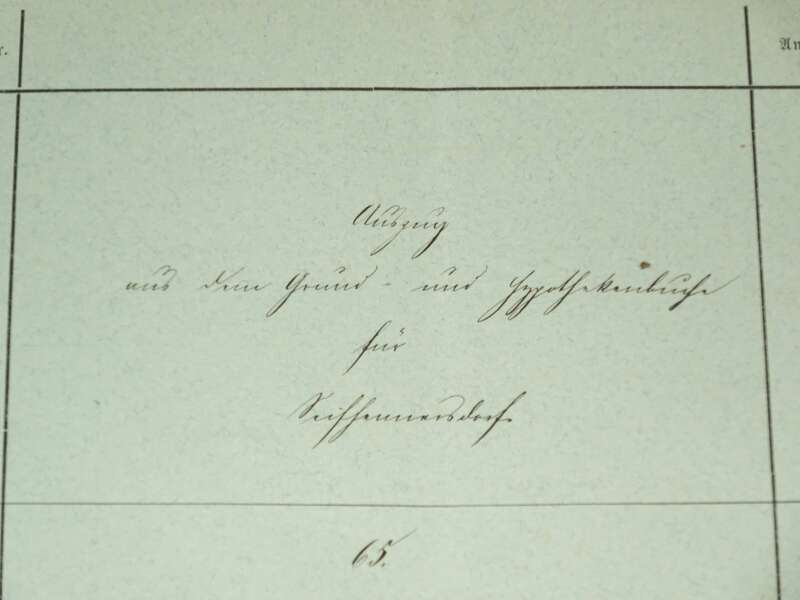 r.
An
Auszug
aus dem Grund- und Hypothekenbuche
für
Seifhennersdorf.
65.